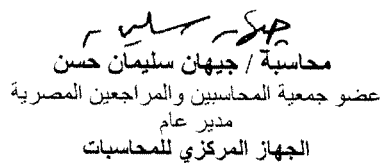 محاسبة / جيهان سليمان حسن
عضو جمعية المحاسبين والمراجعين المصرية
مدير عام
الجهاز المركزي للمحاسبات